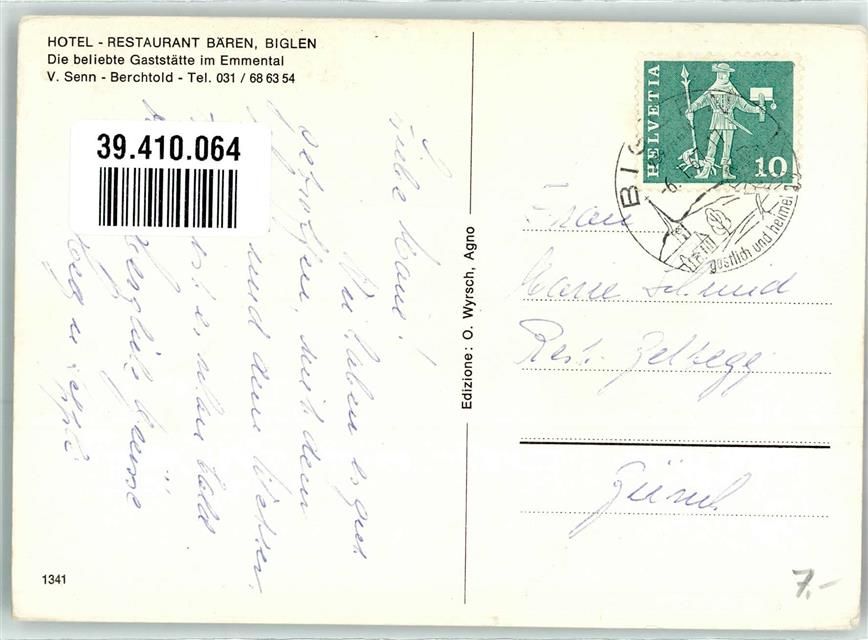 HOTEL - RESTAURANT BÄREN, BIGLEN
Die beliebte Gaststätte im Emmental
V. Senn - Berchtold - Tel. 031 / 68 63 54
39.410.064
Liebe Marie!
Wir haben es gut
getroffen, mit dem
und dem Wetter,
ist es schon bald
Herzliche Grüsse
Edizione: O. Wyrsch, Agno
HELVETIA
10
BIG
gastlich und heimel
Frau
Marie Schmid
Rest. Feldegg
Zürich
1341
7.-